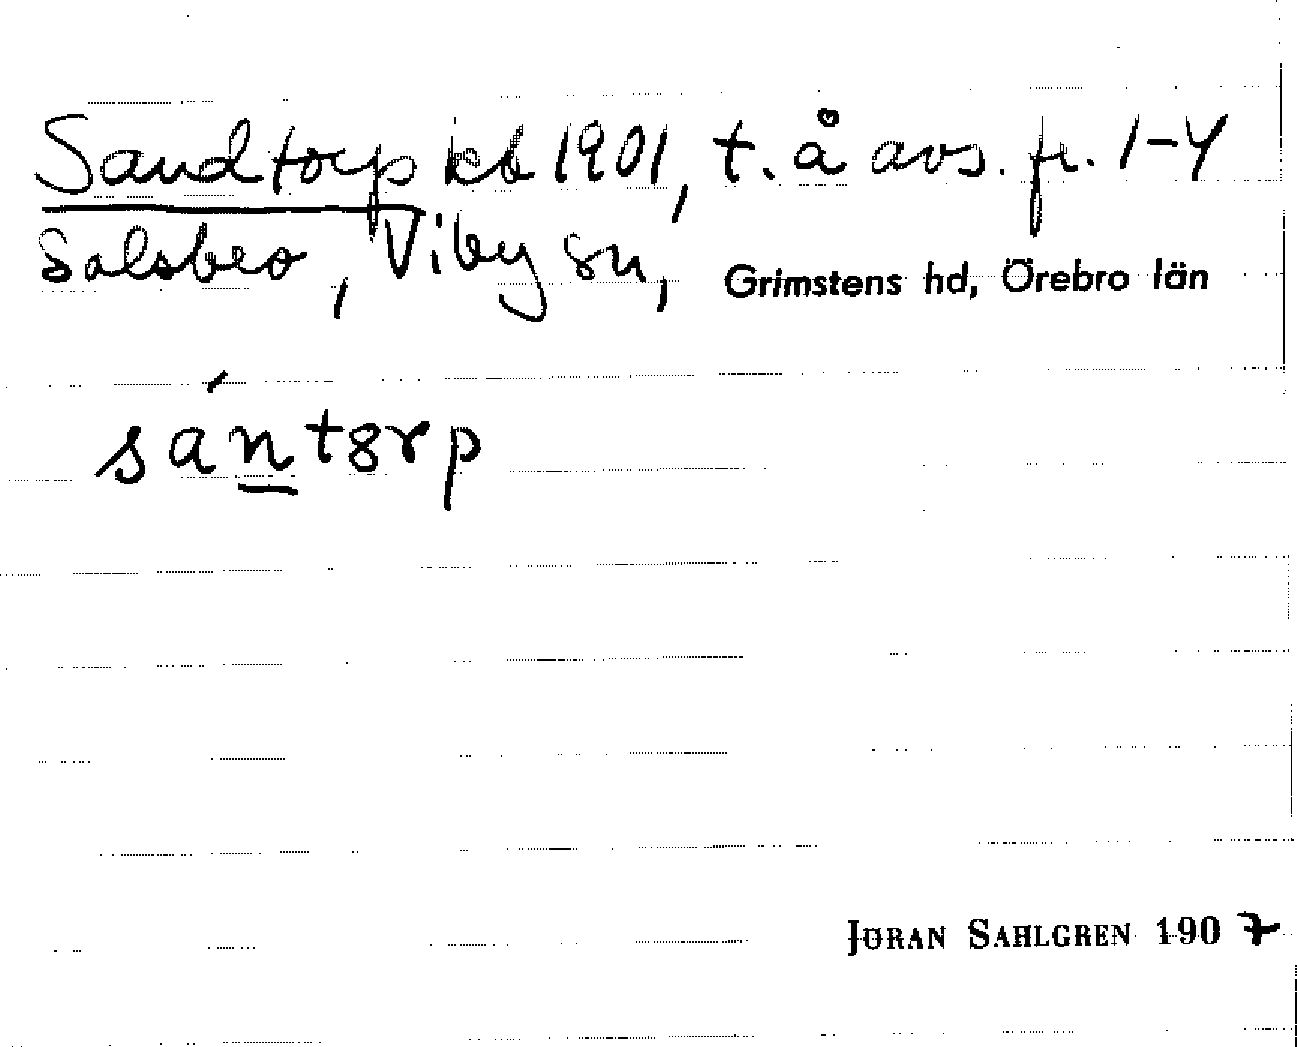 Sandtorp kb 1901, t. å avs. fr. 1-4
Salsbro, Viby sn, Grimstens hd, Örebro län
sántȣrp
JÖRAN SAHLGREN 1907